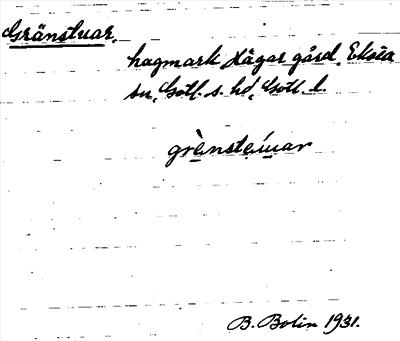 Gränstuar.
hagmark Hägar gård, Eksta
sn, Gotl. s. hd, Gotl. l.
grènsteíuar
B. Bolin 1931.